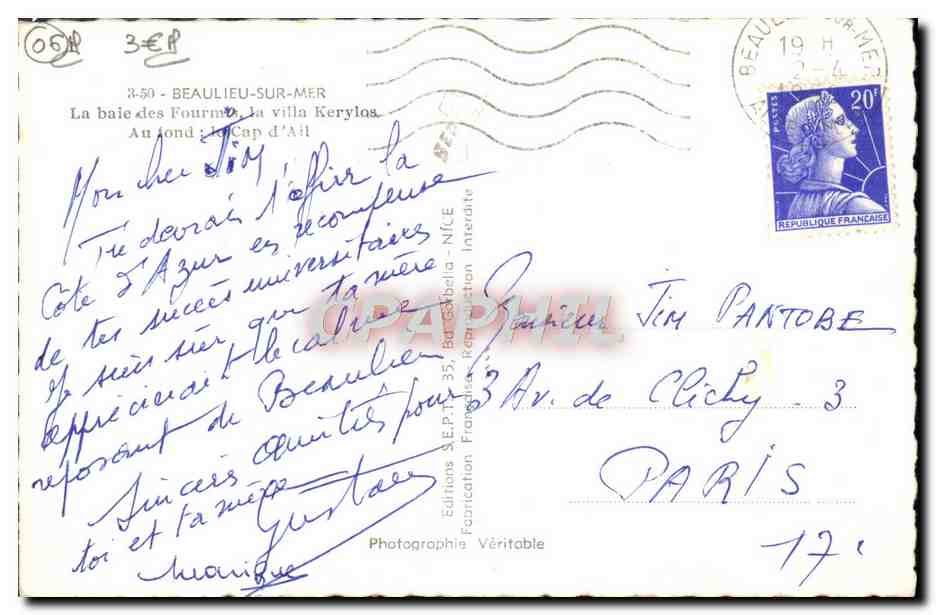 06 3€
3-50 - BEAULIEU-SUR-MER
La baie des Fourmis, la villa Kerylos
Au fond : le Cap d'Ail
BEAULIEU-SUR-MER
19 H
2-4
POSTES
20F
REPUBLIQUE FRANÇAISE
Mon cher Jim
Tu devrais t'offrir la
Côte d'Azur en récompense
de tes succès universitaires
Je suis sûr que ta mère
apprécierait le calme
reposant de Beaulieu
Sincères amitiés pour
toi et ta mère
Gustave
Monique
Editions S.E.P.T., 35, Bd Gorbella - NICE
Fabrication Française Reproduction Interdite
CPAPHIL
Monsieur JIM PANTOBE
3 Av. de Clichy - 3
PARIS
17.
Photographie Véritable